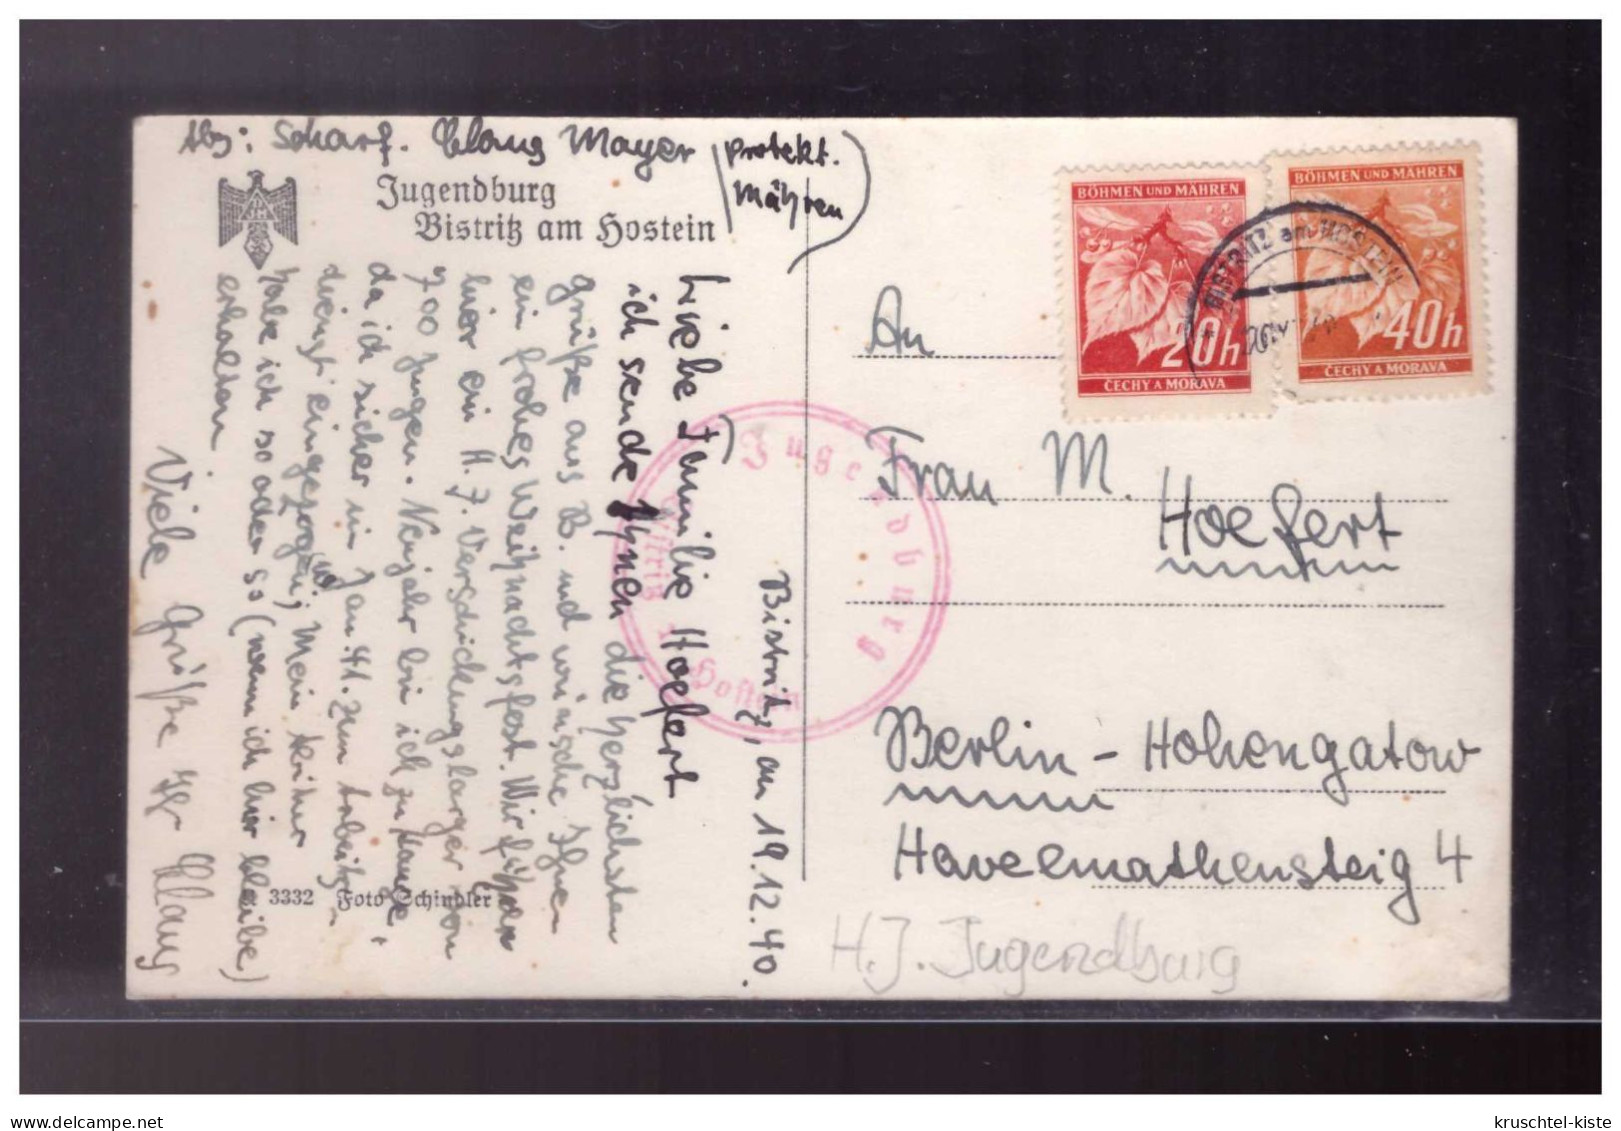 Abs: Scharf. Claus Mayer (Protekt.
Mähren)
Jugendburg
Bistritz am Hostein
Bistritz, am 19.12.40.
Liebe Familie Hoefert
ich sende Ihnen die herzlichsten
Grüße aus B. und wünsche Ihnen
ein frohes Weihnachtsfest. Wir führen
hier ein H. J. Verschickungslager von
700 Jungen. Neujahr bin ich zu Hause,
da ich sicher im Jan. 41. zum Arbeits-
dienst eingezogen; Mein Abitur
habe ich so oder so (wenn ich hier bleibe)
erhalten
Viele Grüße Ihr Claus
3332 Foto Schindler
Jugendburg
Bistritz a. Hostein
BÖHMEN UND MÄHREN
20h
ČECHY A MORAVA
BÖHMEN UND MÄHREN
40h
ČECHY A MORAVA
BISTRITZ am HOSTEIN
An
Frau M.
Hoefert
Berlin - Hohengatow
Havelmathensteig 4
H.J. Jugendburg
delcampe.net
kruschtel-kiste